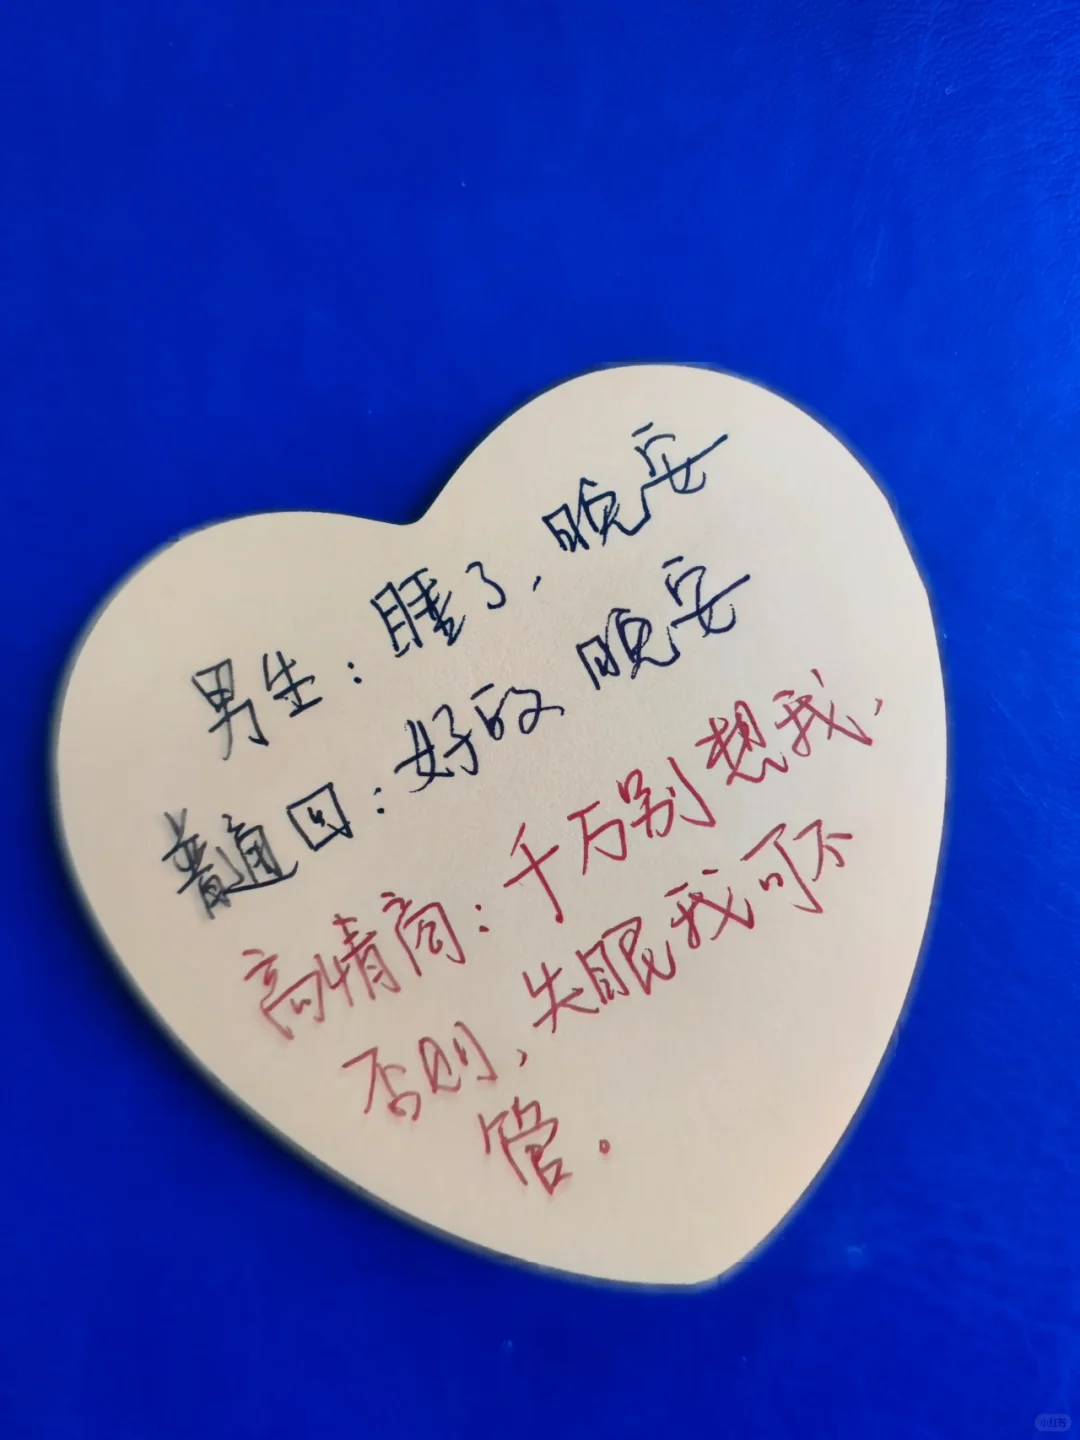 男生：睡了，晚安
普通回：好的 晚安
高情商：千万别想我，
否则，失眠我可不
管。
小红书